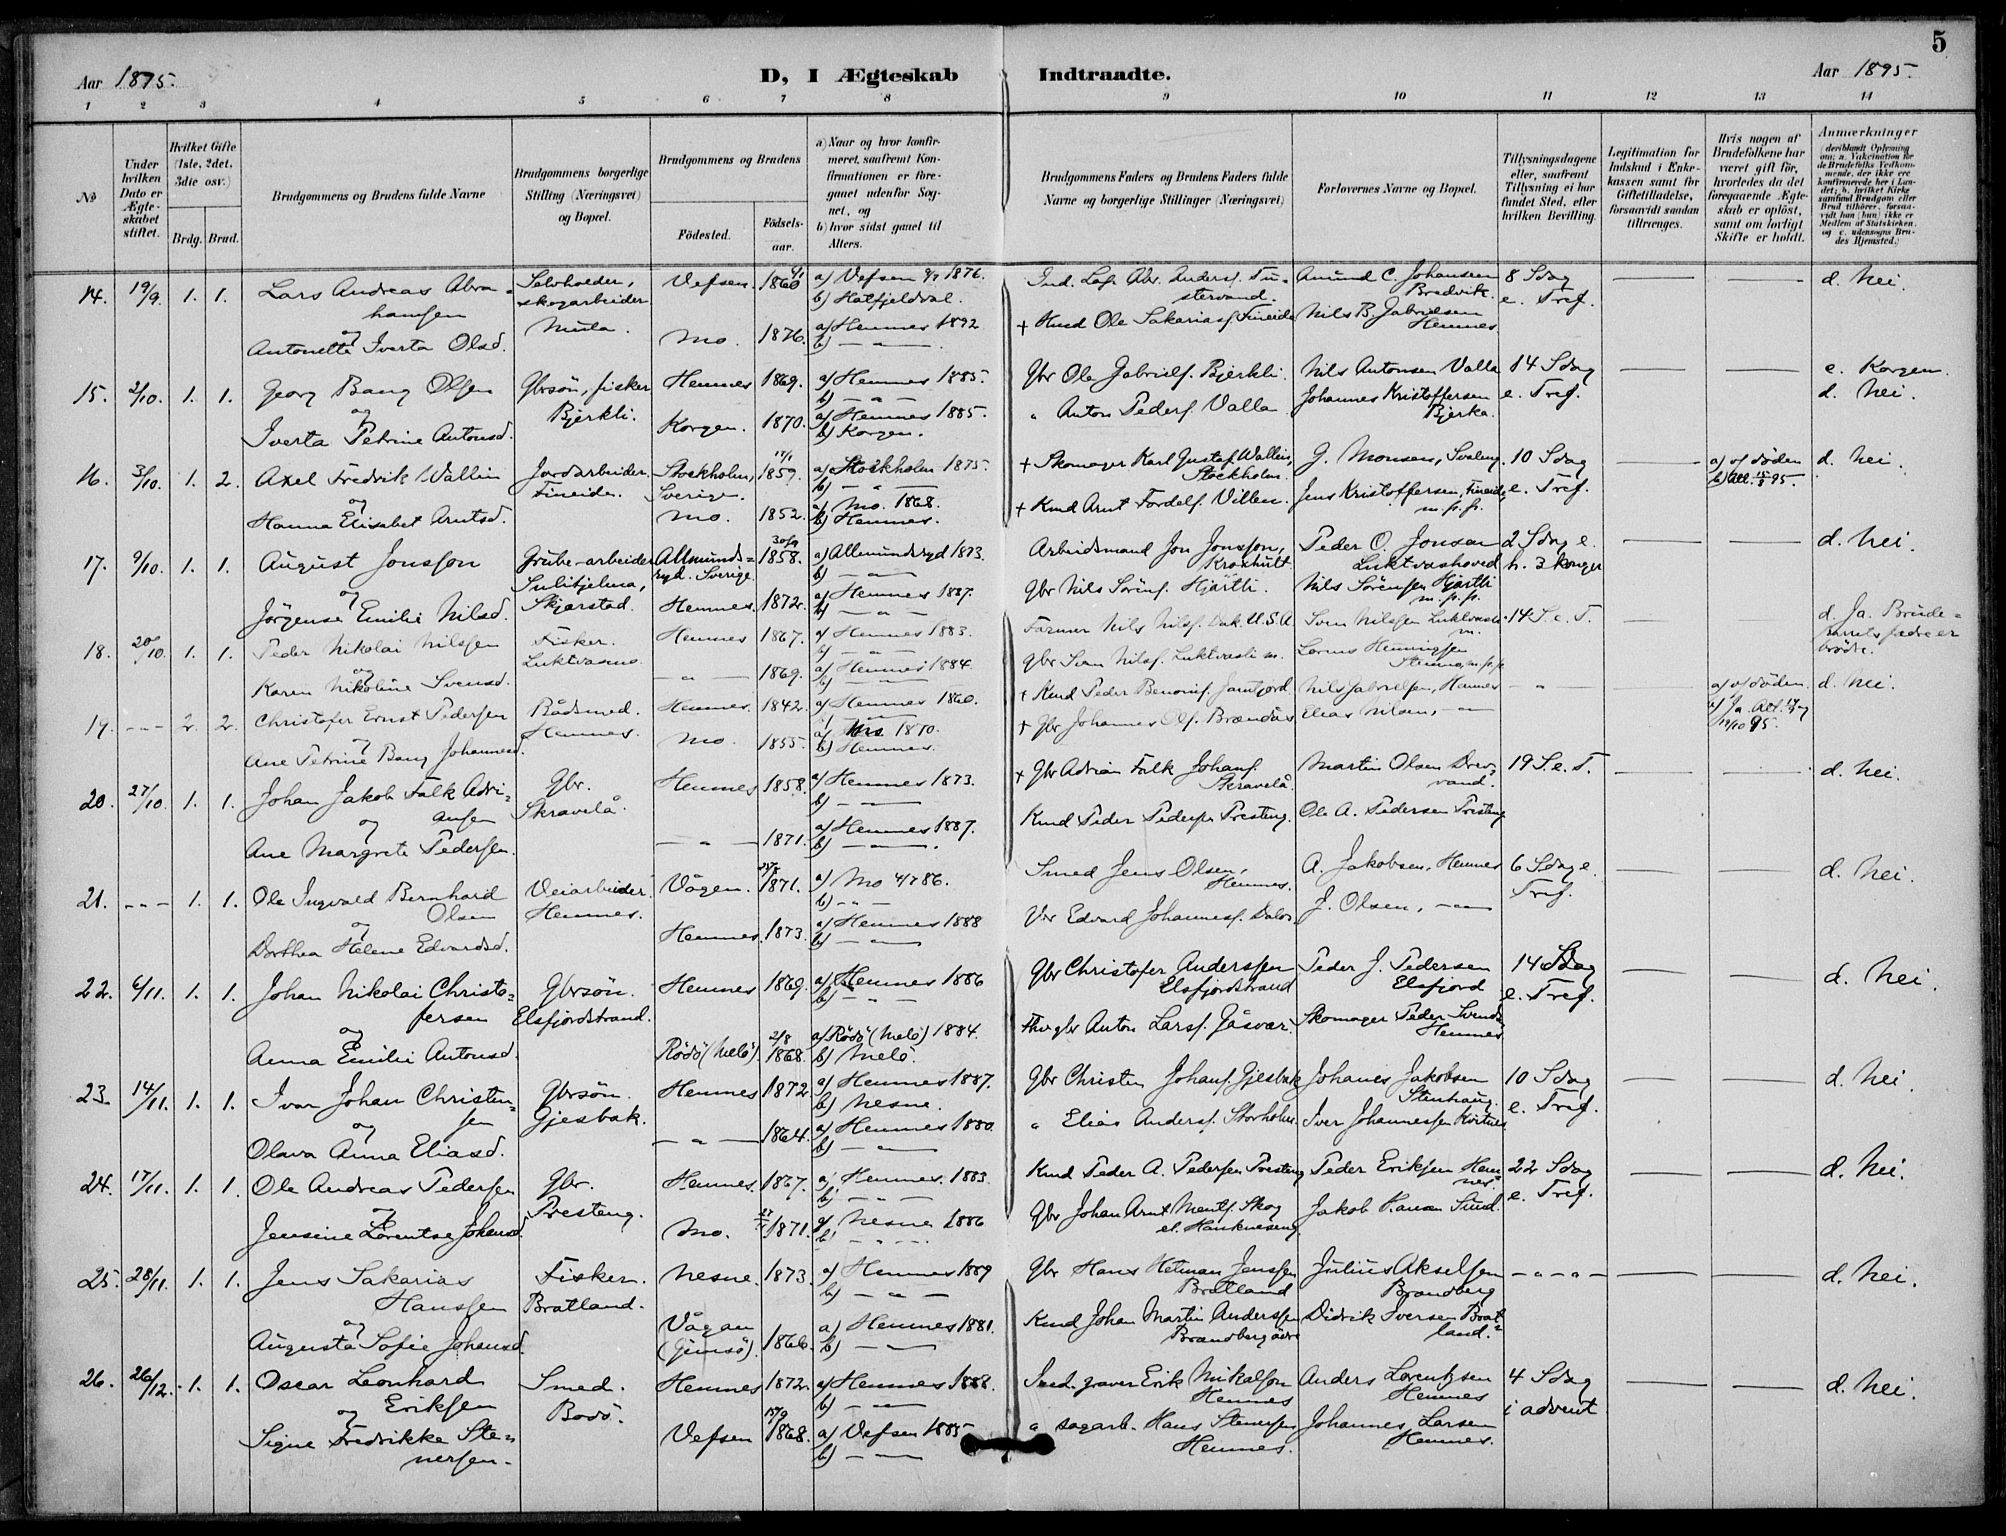 5
Aar 1895.
D, I Ægteskab Indtraadte.
Aar 1895.
1 2 3 4 5 6 7 8 9 10 11 12 13 14
No
Under hvilken Dato er Ægteskabet stiftet.
Hvilket Gifte (1ste, 2det, 3die osv.)
Brdg. Brud.
Brudgommens og Brudens fulde Navne
Brudgommens borgerlige Stilling (Næringsvei) og Bopæl.
Brudgommens og Brudens
Födested.
Födselsaar.
a) Naar og hvor konfirmeret, saafremt Konfirmationen er foregaaet udenfor Sognet, og
b) hvor sidst gaaet til Alters.
Brudgommens Faders og Brudens Faders fulde Navne og borgerlige Stillinger (Næringsvei)
Forlovernes Navne og Bopæl.
Tillysningsdagene eller, saafremt Tillysning ei har fundet Sted, efter hvilken Bevilling.
Legitimation for Indskud i Enkekassen samt for Giftetilladelse, forsaavidt saadan tiltrænges.
Hvis nogen af Brudefolkene har været gift før, hvorledes da det foregaaende Ægteskab er oplöst, samt om lovligt Skifte er holdt.
Anmærkninger (deriblandt Oplysning om: a. Vakcination for de Brudefolks Vedkommende, der ikke ere konfirmerede her i Landet; b. hvilket Kirkesamfund Brudgom eller Brud tilhörer, forsaavidt han (hun) ikke er Medlem af Statskirken, og c. udensogns Brudes Hjemsted.)
14. 19/9. 1. 1. Lars Andreas Abrahamsen og Antonetta Iverta Olsd.
Selvholder, skogarbeider Mula.
Vefsen 1860 a) Vefsen 9/7 1876. b) Hatfjeldal.
Mo. 1876. a) Hemnes 1892 b) — " —.
Ind. Lap. Abr. Anders. Tustervand.
+ Kmd Ole Sakarias. Fineide
Amund C. Johansen Bredvik.
Nils B. Gabrielsen Hemnes.
8 Sdag e. Tref.
d. Nei.
15. 2/10. 1. 1. Georg Bang Olsen og Iverta Petrine Antonsd.
Gbrsön, fisker Bjerkli.
Hemnes 1869. a) Hemnes 1885. b) — " —
Korgen. 1870. a) Hemnes 1885. b) Korgen.
Gbr Ole Gabriels. Bjerkli.
" Anton Peders. Valla
Nils Antonsen Valla
Johannes Kristoffersen Bjerka.
14 Sdag e. Tref.
c. Korgen.
d. Nei.
16. 3/10. 1. 2. Axel Fredrik Wallin og Hanna Elisabet Arntsd.
Jordarbeider Fineide.
Stockholm, Sverige. 1859. a) Stockholm 1875. b) — " —
Mo. 1852. a) Mo. 1868. b) Hemnes.
+ Skomager Karl Gustaf Wallin, Stockholm.
+ Kmd Arnt Fordels. Villen.
J. Monsen, Svaleng.
Jens Kristoffersen, Fineide m.p.p.
10 Sdag e. Tref.
a) v/ döden
b) Att. 15/8 95.
d. Nei.
17. 9/10. 1. 1. August Jonsson og Jörgense Emilie Nilsd.
Grube-arbeider Sulitjelma, Skjerstad.
Allmundsryd. Sverige 30/9 1858. a) Allmundsryd 1873. b) — " —
Hemnes 1872. a) Hemnes 1887. b) — " —
Arbeidsmand Jon Jonsson, Kroxhult
Gbr Nils Sörens. Hjartli.
Peder O. Jonsen Luktvashoved
Nils Sörensen Hjartli m.p.p.
2 Sdag e. h. 3 konger
d. Nei.
18. 20/10. 1. 1. Peder Nikolai Nilssen og Karen Nikoline Svensd.
Fisker. Luktvasmo
Hemnes 1867. a) Hemnes 1883. b) — " —
— " — 1869. a) Hemnes 1884. b) — " —
Farmer Nils Nils. Dak. U.S.A
Gbr Sven Nils. Luktvasli m.
Sven Nilssen Luktvasli m.
Lorens Henningsen m.p.p.
14 S. e. T.
d. Ja. Brudeparrets fædre er brödre.
19. --- 2. 2. Christofer Ernst Pedersen og Ane Petrine Bang Johannesd.
Bådsmed. Hemnes.
Hemnes. 1842. a) Hemnes 1860. b) — " —
Mo. 1855. a) Mo 1870. b) Hemnes.
+ Kmd Peder Benonis. Jamtjord
+ Gbr Johannes Ols. Brændås
Nils Gabrielsen, Hemnes
Elias Nilsen, — " —
— " —
a) v/ döden
b) Ja. Att. 19/10 95.
d. Nei.
20. 27/10. 1. 1. Johan Jakob Falk Adriansen og Ane Margrete Pedersen.
Gbr. Skravelå.
Hemnes 1858. a) Hemnes 1873. b) — " —
— " — 1871. a) Hemnes 1887. b) — " —.
+ Gbr Adrian Falk Johans. Skravelå
Kmd Peder Peders. Presteng.
Martin Olsen Drevvand.
Ole A. Pedersen Presteng
19 S. e. T.
d. Nei.
21. --- 1. 1. Ole Ingvald Bernhard Olsen og Dorthea Helene Edvardsd.
Veiarbeider Hemnes.
Vågen. 1871. a) Mo 4/7 86. b) — " —
Hemnes. 1873. a) Hemnes 1888 b) — " —
Smed Jens Olsen, Hemnes.
Edvard Johannes. Dalos
A. Jakobsen, Hemnes
J. Olsen, — " —
6 Sdag e. Tref.
d. Nei.
22. 6/11. 1. 1. Johan Nikolai Christofersen og Anna Emilie Antonsd.
Gbrsön. Elsfjordstrand.
Hemnes 1869. a) Hemnes 1886 b) — " —
Rödö (Melö) 2/8 1868. a) Rödö (Melö) 1884. b) Melö.
Gbr Christofer Anderssen Elsfjordstrand
Fhv gbr Anton Lars. Gåsvær
Peder J. Pedersen Elsfjord
Skomager Peder Svends. Hemnes
14 Sdag e. Tref.
d. Nei.
23. 14/11. 1. 1. Ivar Johan Christensen og Olava Anna Eliasd.
Gbrsön. Gjesbak.
Hemnes 1872 a) Hemnes 1887. b) Nesne.
— " — 1864. a) Hemnes 1880. b) — " —
Gbr Christen Johans. Gjesbak
" Elias Anders. Storholm.
Johanes Jakobsen Stenhaug.
Iver Johannessen Kvitnes
10 Sdag e. Tref.
d. Nei.
24. 17/11. 1. 1. Ole Andreas Pedersen og Jensine Lorentse Johansd.
Gbr. Presteng.
Hemnes. 1867. a) Hemnes. 1883. b) — " —
Mo. 1871. a) Nesne 1886 b) — " —
Kmd Peder A. Pedersen Presteng
Gbr Johan Arnt Skog el. Hauknesseng
Peder Eriksen Hemnes.
Jakob Hansen Sund.
22 Sdag e. Tref.
d. Nei.
25. 28/11. 1. 1. Jens Sakarias Hanssen og Augusta Sofie Johansd.
Fisker. Bratland.
Nesne. 1873. a) Hemnes 1889 b) — " —
Vågan (Gimsö). 1866. a) Hemnes 1881. b) — " —
Gbr Hans Hetman Jenssen Bratland
Kmd Johan Martin Anderssen Brandberg
Julius Akselsen Brandberg
Didrik Iversen Bratland.
— " — " —
d. Nei.
26. 26/12. 1. 1. Oscar Leonhard Eriksen og Signe Fredrikke Stenersen.
Smed. Bodö.
Hemnes 1872. a) Hemnes 1888. b) — " —
Vefsen 1868. a) Vefsen 1885. b) — " —
Ind. graver Erik Mikalsen Hemnes
" sagarb. Hans Stenersen Hemnes.
Anders Lorentzen Hemnes
Johannes Larsen Hemnes.
4 Sdag i advent
d. Nei.